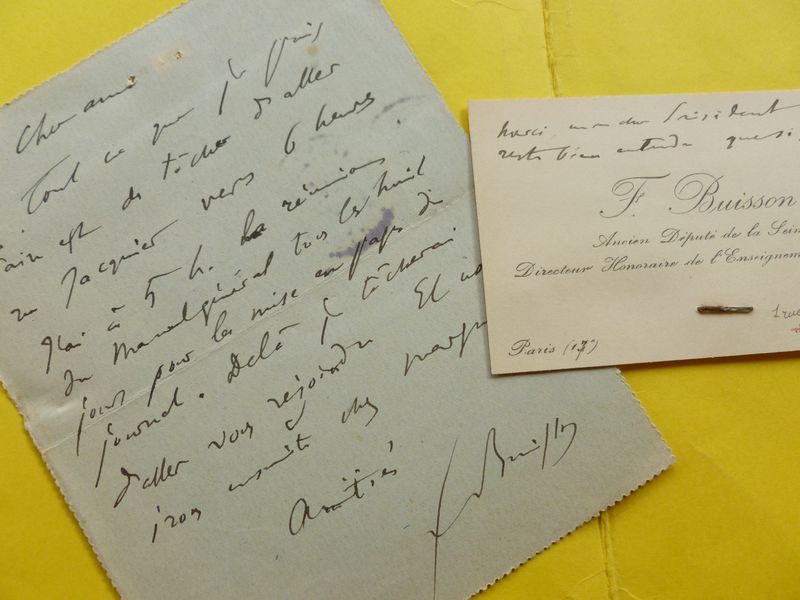 Cher ami
Tout ce que je puis
faire est de tâcher d'aller
rue Jacquier vers 6 heures
J'ai à 5 h. la réunion
du Manuel général tous les huit
jours pour la mise en pages du
journal. De là je tâcherai
d'aller vous rejoindre Et
irons ensuite chez
Amitiés
F Buisson
Merci mon cher Président
reste bien entendu
F. Buisson
Ancien Député de la Sein
Directeur Honoraire de l'Enseignem
Paris (17e)
1 rue